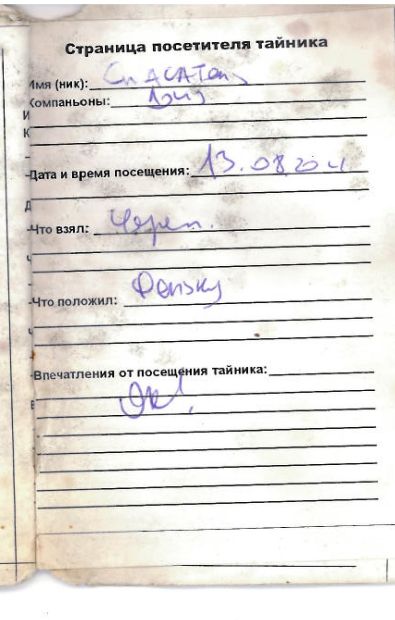 Страница посетителя тайника
Имя (ник): СПАСАТель
Компаньоны:
Дата и время посещения: 13.08.20
Что взял: Череп.
Что положил: Феньку
Впечатления от посещения тайника:
Ок!